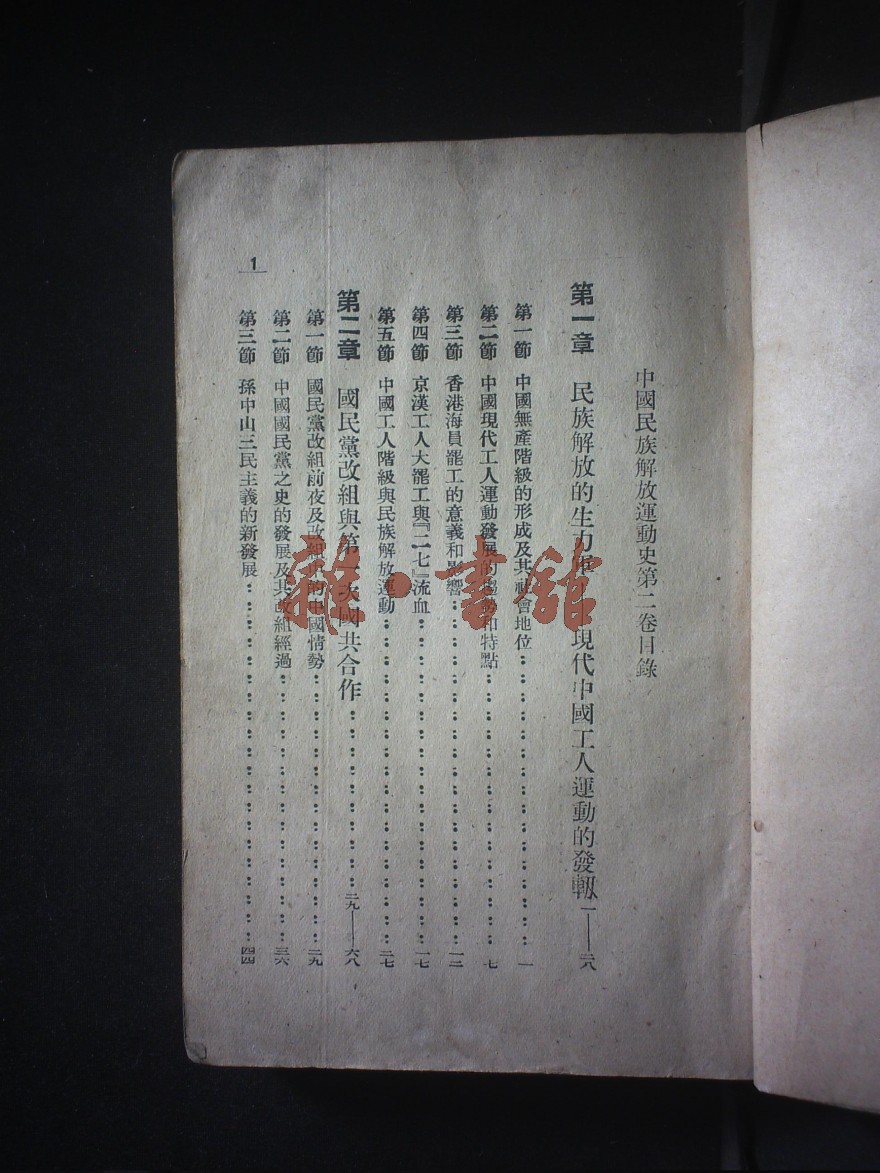 中國民族解放運動史第二卷目錄
第一章 民族解放的生力 現代中國工人運動的發軔 一——二八
第一節 中國無產階級的形成及其社會地位 一
第二節 中國現代工人運動發展的趨勢和特點 七
第三節 香港海員罷工的意義和影響 一二
第四節 京漢工人大罷工與『二七』流血 一七
第五節 中國工人階級與民族解放運動 二七
第二章 國民黨改組與第一次國共合作 二九——六八
第一節 國民黨改組前夜及改組中的中國情勢 二九
第二節 中國國民黨之史的發展及其改組經過 三六
第三節 孫中山三民主義的新發展 四四
1
雜·書館